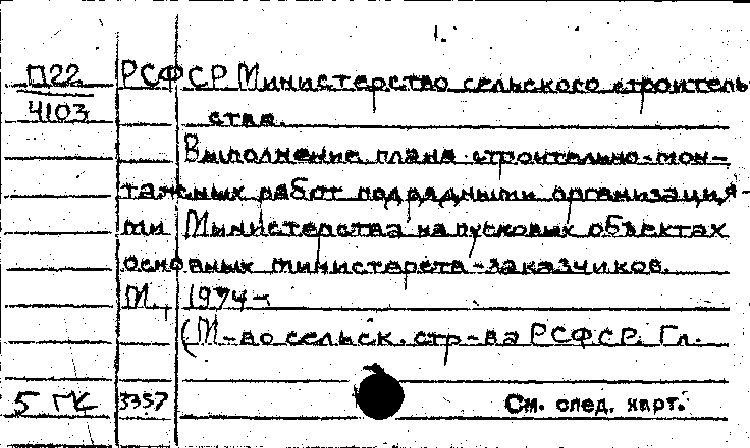 1.
П22 РСФСР Министерство сельского строитель
4103 ства.
Выполнение плана строительно-мон-
тажных работ подрядными организация-
ми Министерства на пусковых объектах
основных министерств-заказчиков.
М., 1974-
(М-во сельск. стр-ва РСФСР. Гл.
5 ГК 3357 См. след. карт.